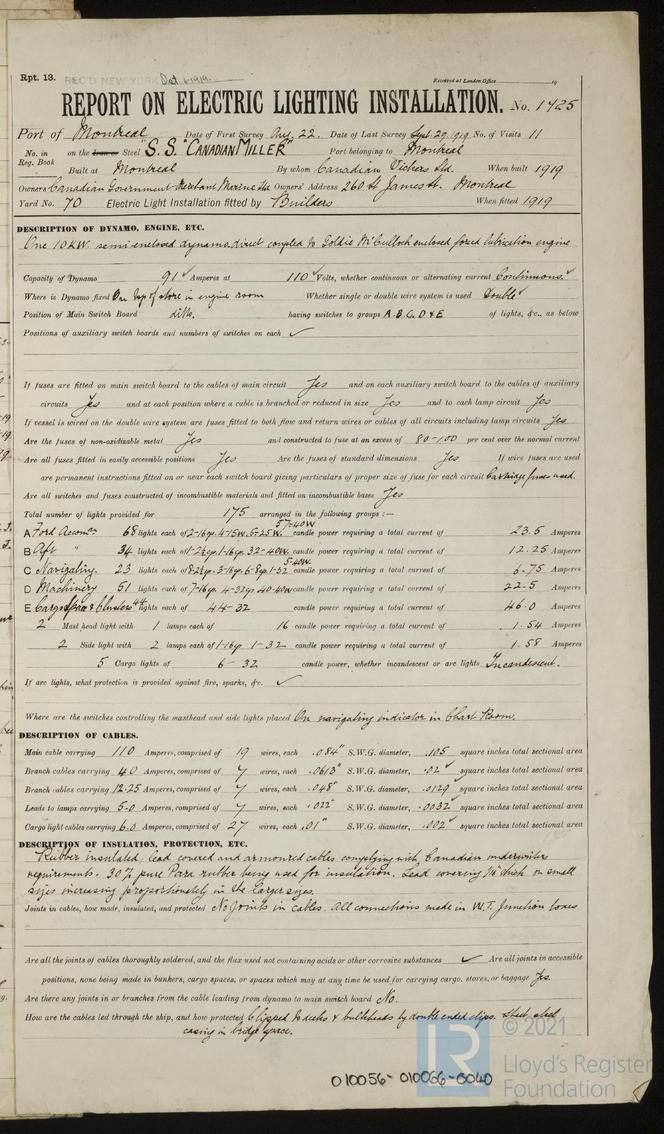 Rpt. 13. REC'D NEW YORK Oct 1 1919 Received at London Office 19
REPORT ON ELECTRIC LIGHTING INSTALLATION. No. 1425
Port of Montreal Date of First Survey Aug. 22. Date of Last Survey Sept 29 1919 No. of Visits 11
No. in Reg. Book on the Iron or Steel "S.S. "CANADIAN MILLER" Port belonging to Montreal
Built at Montreal By whom Canadian Vickers Ltd. When built 1919
Owners Canadian Government Merchant Marine Ltd Owners' Address 260 St James St. Montreal
Yard No. 70 Electric Light Installation fitted by Builders When fitted 1919
DESCRIPTION OF DYNAMO, ENGINE, ETC.
One 10 KW. semi-enclosed dynamo direct coupled to Goldie McCulloch enclosed forced lubrication engine
Capacity of Dynamo 91 ✓ Amperes at 110 ✓ Volts, whether continuous or alternating current Continuous. ✓
Where is Dynamo fixed On top of store in engine room Whether single or double wire system is used Double ✓
Position of Main Switch Board ditto. having switches to groups A.B.C.D & E of lights, &c., as below
Positions of auxiliary switch boards and numbers of switches on each ✓
If fuses are fitted on main switch board to the cables of main circuit Yes and on each auxiliary switch board to the cables of auxiliary
circuits Yes and at each position where a cable is branched or reduced in size Yes and to each lamp circuit Yes
If vessel is wired on the double wire system are fuses fitted to both flow and return wires or cables of all circuits including lamp circuits Yes
Are the fuses of non-oxidizable metal Yes and constructed to fuse at an excess of 80-100 per cent over the normal current
Are all fuses fitted in easily accessible positions Yes Are the fuses of standard dimensions Yes If wire fuses are used
are permanent instructions fitted on or near each switch board giving particulars of proper size of fuse for each circuit Cartridge fuses used.
Are all switches and fuses constructed of incombustible materials and fitted on incombustible bases Yes
Total number of lights provided for 175 arranged in the following groups :—
A Ford Accom. 68 lights each of 2-16cp. 4-75w. 5-25w. 57-40w candle power requiring a total current of 23.5 Amperes
B Aft " 34 lights each of 1-2½cp. 1-16cp. 32-40w. candle power requiring a total current of 12.25 Amperes
C Navigating. 23 lights each of 8-2½cp. 3-16cp. 6-8cp. 1-32 5-40w. candle power requiring a total current of 6.75 Amperes
D Machinery 51 lights each of 7-16cp. 4-32cp 40-40w candle power requiring a total current of 22.5 Amperes
E Cargo & Clusters 44 lights each of 44-32 candle power requiring a total current of 46.0 Amperes
2 Mast head light with 1 lamps each of 16 candle power requiring a total current of 1.54 Amperes
2 Side light with 2 lamps each of 1-16cp 1-32 candle power requiring a total current of 1.58 Amperes
5 Cargo lights of 6-32 candle power, whether incandescent or arc lights Incandescent.
If arc lights, what protection is provided against fire, sparks, &c. ✓
Where are the switches controlling the masthead and side lights placed On navigating indicator in Chart Room.
DESCRIPTION OF CABLES.
Main cable carrying 110 Amperes, comprised of 19 wires, each .084" S.W.G. diameter, .105 square inches total sectional area
Branch cables carrying 40 Amperes, comprised of 7 wires, each .0613" S.W.G. diameter, .02 ✓ square inches total sectional area
Branch cables carrying 12.25 Amperes, comprised of 7 wires, each .048" S.W.G. diameter, .0129 square inches total sectional area
Leads to lamps carrying 5.0 Amperes, comprised of 7 wires, each .022" S.W.G. diameter, .0032 ✓ square inches total sectional area
Cargo light cables carrying 6.0 Amperes, comprised of 27 wires, each .01" S.W.G. diameter, .002 ✓ square inches total sectional area
DESCRIPTION OF INSULATION, PROTECTION, ETC.
Rubber insulated, lead covered and armoured cables complying with Canadian underwriters
requirements. 30% pure Para rubber being used for insulation. Lead covering 1/16" thick on small
sizes increasing proportionately in the larger sizes.
Joints in cables, how made, insulated, and protected No joints in cables. All connections made in W.T. Junction boxes
Are all the joints of cables thoroughly soldered, and the flux used not containing acids or other corrosive substances ✓ Are all joints in accessible
positions, none being made in bunkers, cargo spaces, or spaces which may at any time be used for carrying cargo, stores, or baggage Yes.
Are there any joints in or branches from the cable leading from dynamo to main switch board No.
How are the cables led through the ship, and how protected Clipped to decks & bulkheads by double ended clips. Sheet steel
casing in bridge space.
© 2021
LR
Lloyd's Register
Foundation
010056-010066-0040